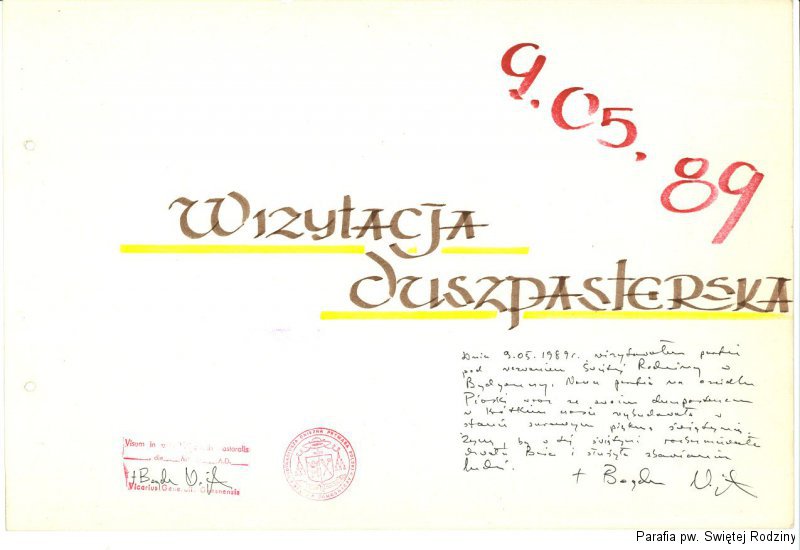 9.05.89
Wizytacja
duszpasterska
Dnia 9.05.1989r. wizytowałem parafię
pod wezwaniem Świętej Rodziny w
Bydgoszczy. Nowa parafia na osiedlu
Piaski wraz ze swoim duszpasterzem
w krótkim czasie wybudowała
stanie surowym piękną świątynię.
Życzę, by w tej świątyni rozbrzmiewała
chwała Boża i służyła zbawieniu
ludzi.
+ Bogdan
Visum in pastoralis
die A.D.
+ Bogdan
Vicarius Gnesnensis
Parafia pw. Swiętej Rodziny